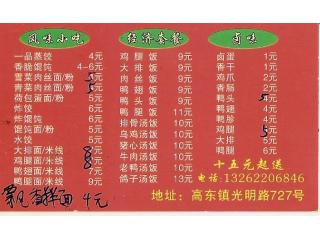 风味小吃
一品蒸饺 4元
香脆馄饨 4-6元
雪菜肉丝面/粉 5元
青菜肉丝面/粉 5元
荷包蛋面/粉 5元
炸饺 6元
炸馄饨 6元
馄饨面/粉 5元
水饺 5元
大排面/米线 8元
鸡腿面/米线 8元
鸭腿面/米线 9元
香拌面 4元
经济套餐
鸡腿饭 9元
大排饭 9元
肉丝饭 9元
鸭翅饭 9元
鸭头饭 9元
鸭腿饭 11元
排骨汤饭 10元
乌鸡汤饭 10元
猪心汤饭 10元
牛肉汤饭 10元
老鸭汤饭 10元
鸽子汤饭 13元
卤味
卤蛋 1元
香干 1元
鸡爪 2元
香肠 2元
鸭头 元
鸭翅 4元
鸭胗 5元
鸡腿 5元
大排 5元
鸭腿 6元
十五元起送
电话:13262206846
地址:高东镇光明路727号